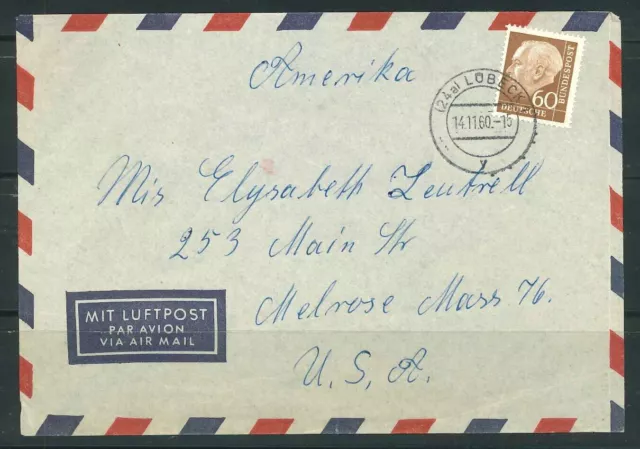 Amerika
DEUTSCHE
BUNDESPOST
60
(24a) LÜBECK
14.11.60.-15
y
Mis Elysabeth Lentrell
253 Main Str
Melrose Mass 76.
U. S. A.
MIT LUFTPOST
PAR AVION
VIA AIR MAIL